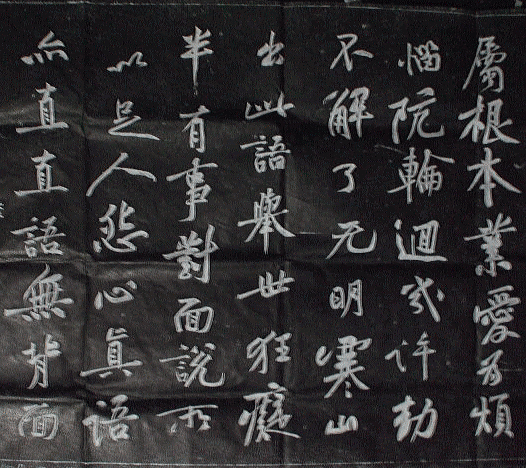 屬根本業愛為煩
惱阬輪迴幾許劫
不解了无明寒山
出此語舉世狂癡
半有事對面說所
以足人怨心真語
亦直直語無背面